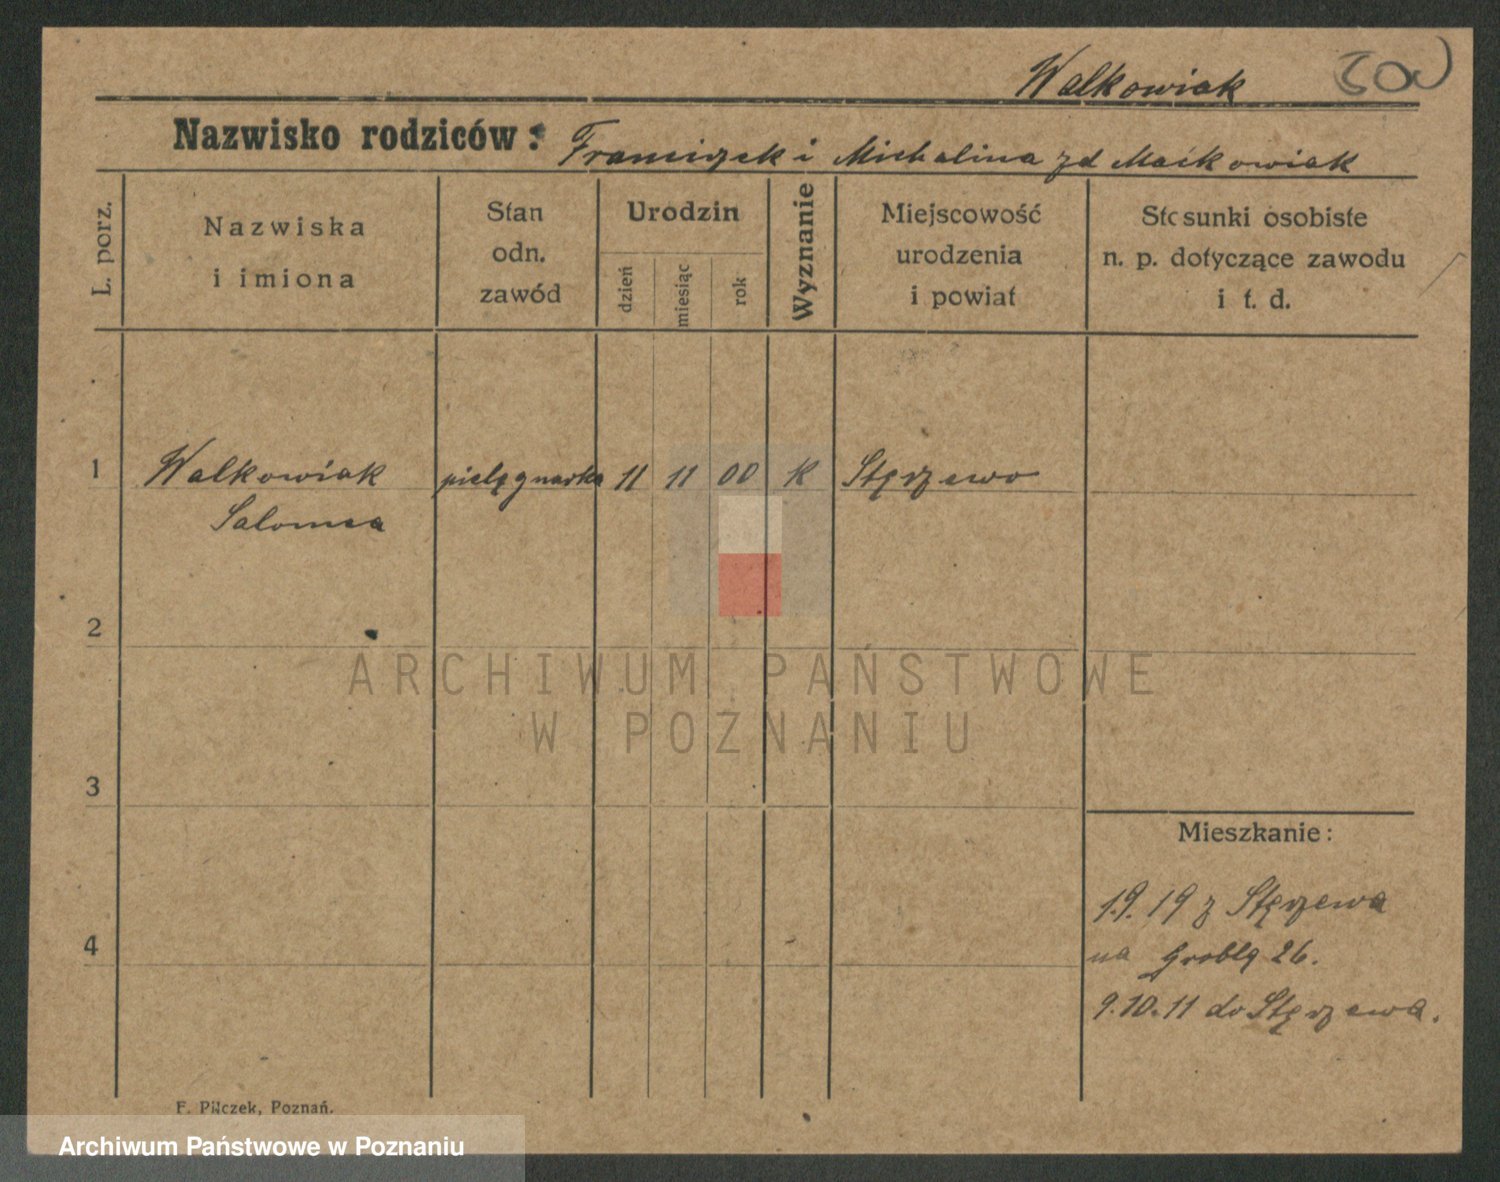 Walkowiak
Nazwisko rodziców: Franciszek i Michalina zd Maćkowiak
L. porz.
Nazwiska
i imiona
Stan
odn.
zawód
Urodzin
dzień
miesiąc
rok
Wyznanie
Miejscowość
urodzenia
i powiat
Stosunki osobiste
n. p. dotyczące zawodu
i t. d.
1 Walkowiak pielęgnarka 11 11 00 K Stęszewo
Salomea
2
ARCHIWUM PAŃSTWOWE
W POZNANIU
3
Mieszkanie:
1.9.19 z Stęszewa
4
na Groblą 26.
9.10.11 do Stęszewa.
F. Pilczek, Poznań.
Archiwum Państwowe w Poznaniu